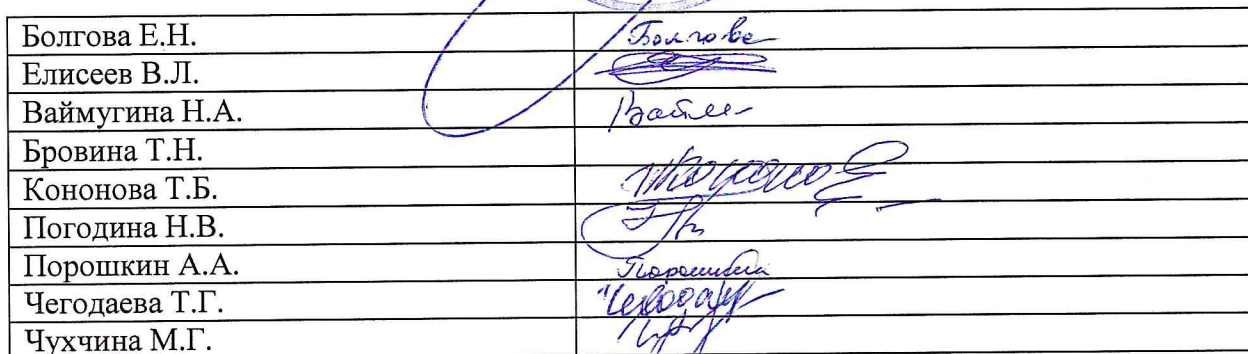 Болгова Е.Н. Болгова
Елисеев В.Л.
Ваймугина Н.А. Вайм
Бровина Т.Н.
Кононова Т.Б.
Погодина Н.В.
Порошкин А.А.
Чегодаева Т.Г.
Чухчина М.Г.